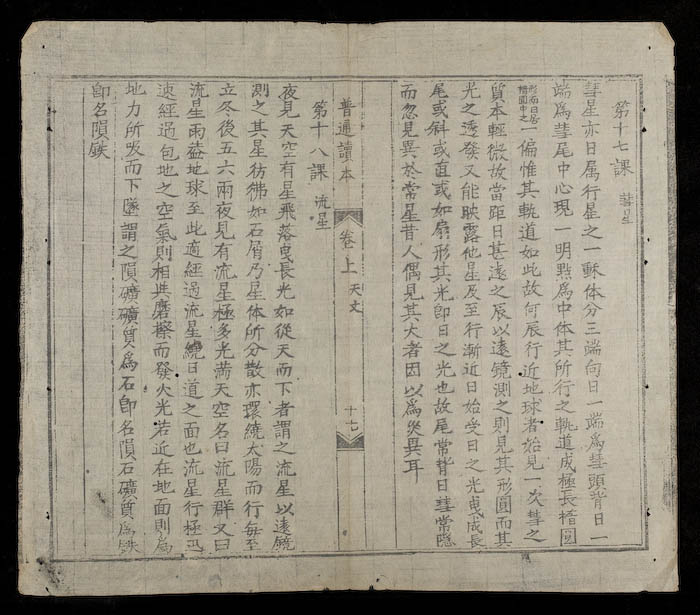 第十七課 彗星
彗星亦日属行星之一体分三端向日一端為彗頭背日一
端為彗尾中心現一明點為中体其所行之軌道成極長橢圓
形而日居橢圓中之一偏惟其軌道如此故何辰行近地球者始見一次彗之
質本輕微故當距日甚遠之辰以遠鏡測之則見其形圓而其
光之透發又能映露他星及至行漸近日始受日之光曳成長
尾或斜或直或如扇形其光即日之光也故尾常背日彗常隱
而忽見異於常星昔人偶見其大者因以為災異耳
普通讀本 卷上 天文 十七
第十八課 流星
夜見天空有星飛落曳長光如從天而下者謂之流星以遠鏡
測之其星彷彿如石屑乃星体所分散亦環繞太陽而行每至
立冬後五六兩夜見有流星極多光満天空名曰流星群又曰
流星雨盖地球至此適經過流星繞日道之面也流星行極迅
速經過包地之空氣則相共磨擦而發火光若近在地面則為
地力所吸而下墜謂之隕礦礦質為石即名隕石礦質為鉄
即名隕鉄